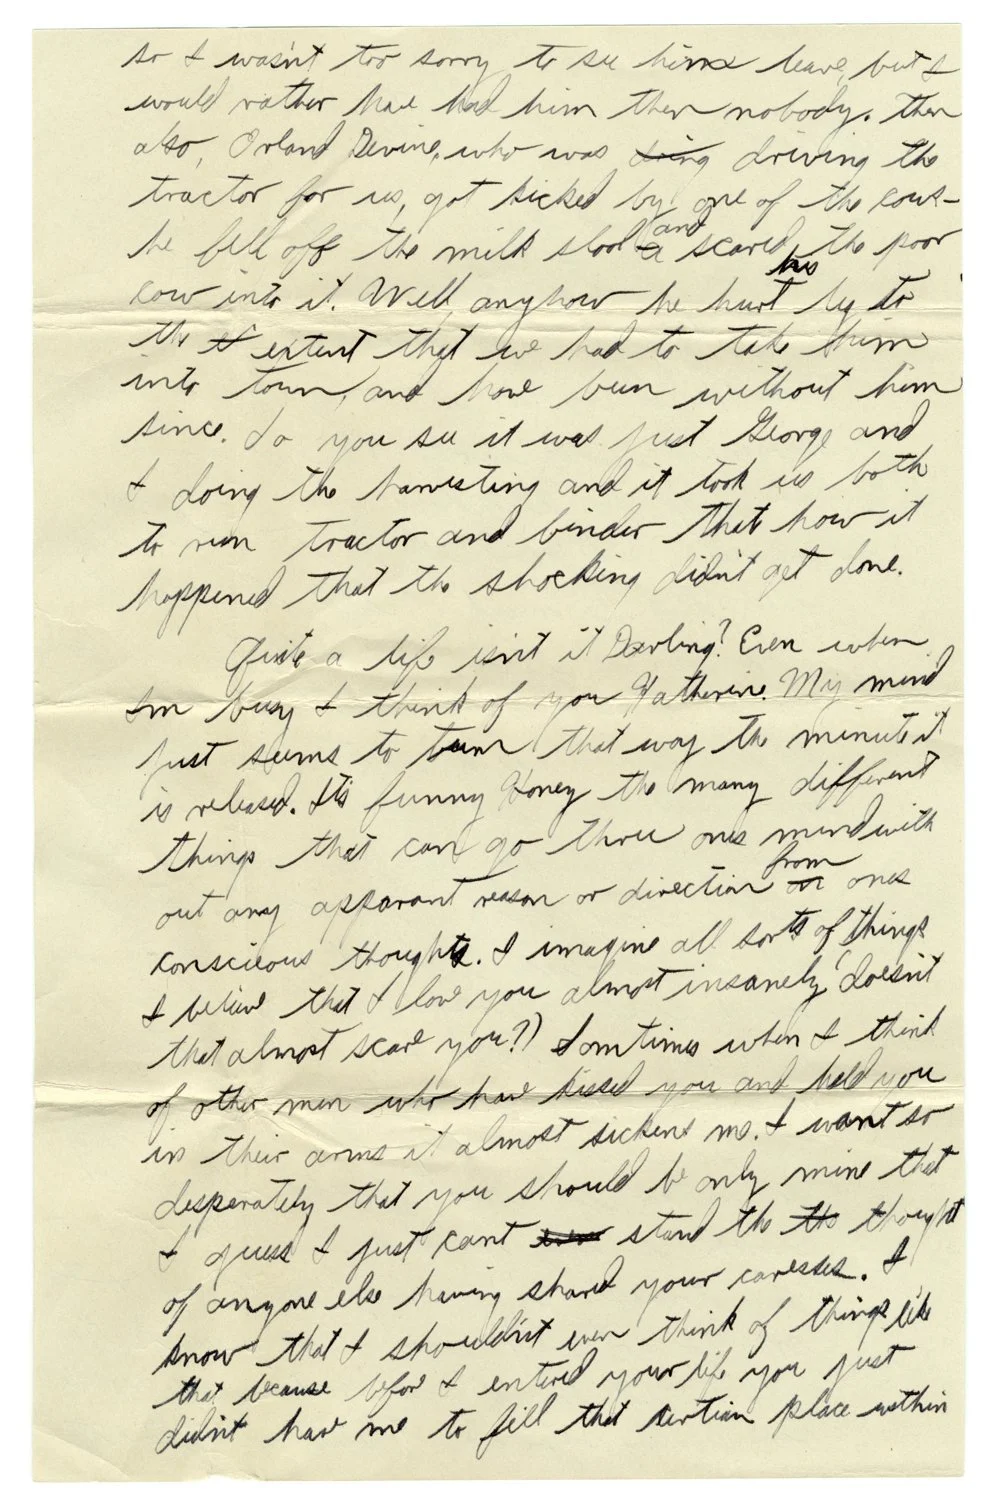 so I wasn't too sorry to see him leave, but I
would rather have had him then nobody. Then
also, Orland Devine, who was driving the
tractor for us, got kicked by one of the cows–
he fell off the milk stool and scared the poor
cow into it. Well anyhow he hurt his leg to
the extent that we had to take him
into town, and have been without him
since. So you see it was just George and
I doing the harvesting and it took us both
to run tractor and binder that how it
happened that the shocking didn't get done.
Quite a life isn't it Darling? Even when
Im busy I think of you Katherine. My mind
just seems to turn that way the minute it
is released. It's funny Honey the many different
things that can go thru ones mind with
out any apparant reason or direction from ones
conscious thoughts. I imagine all sorts of things
I believe that I love you almost insanely (doesn't
that almost scare you?) Sometimes when I think
of other men who have kissed you and held you
in their arms it almost sickens me. I want so
desperately that you should be only mine that
I guess I just cant stand the thought
of anyone else having shared your caresses. I
know that I shouldn't even think of things like
that because before I entered your life you just
didn't have me to fill that certian place within